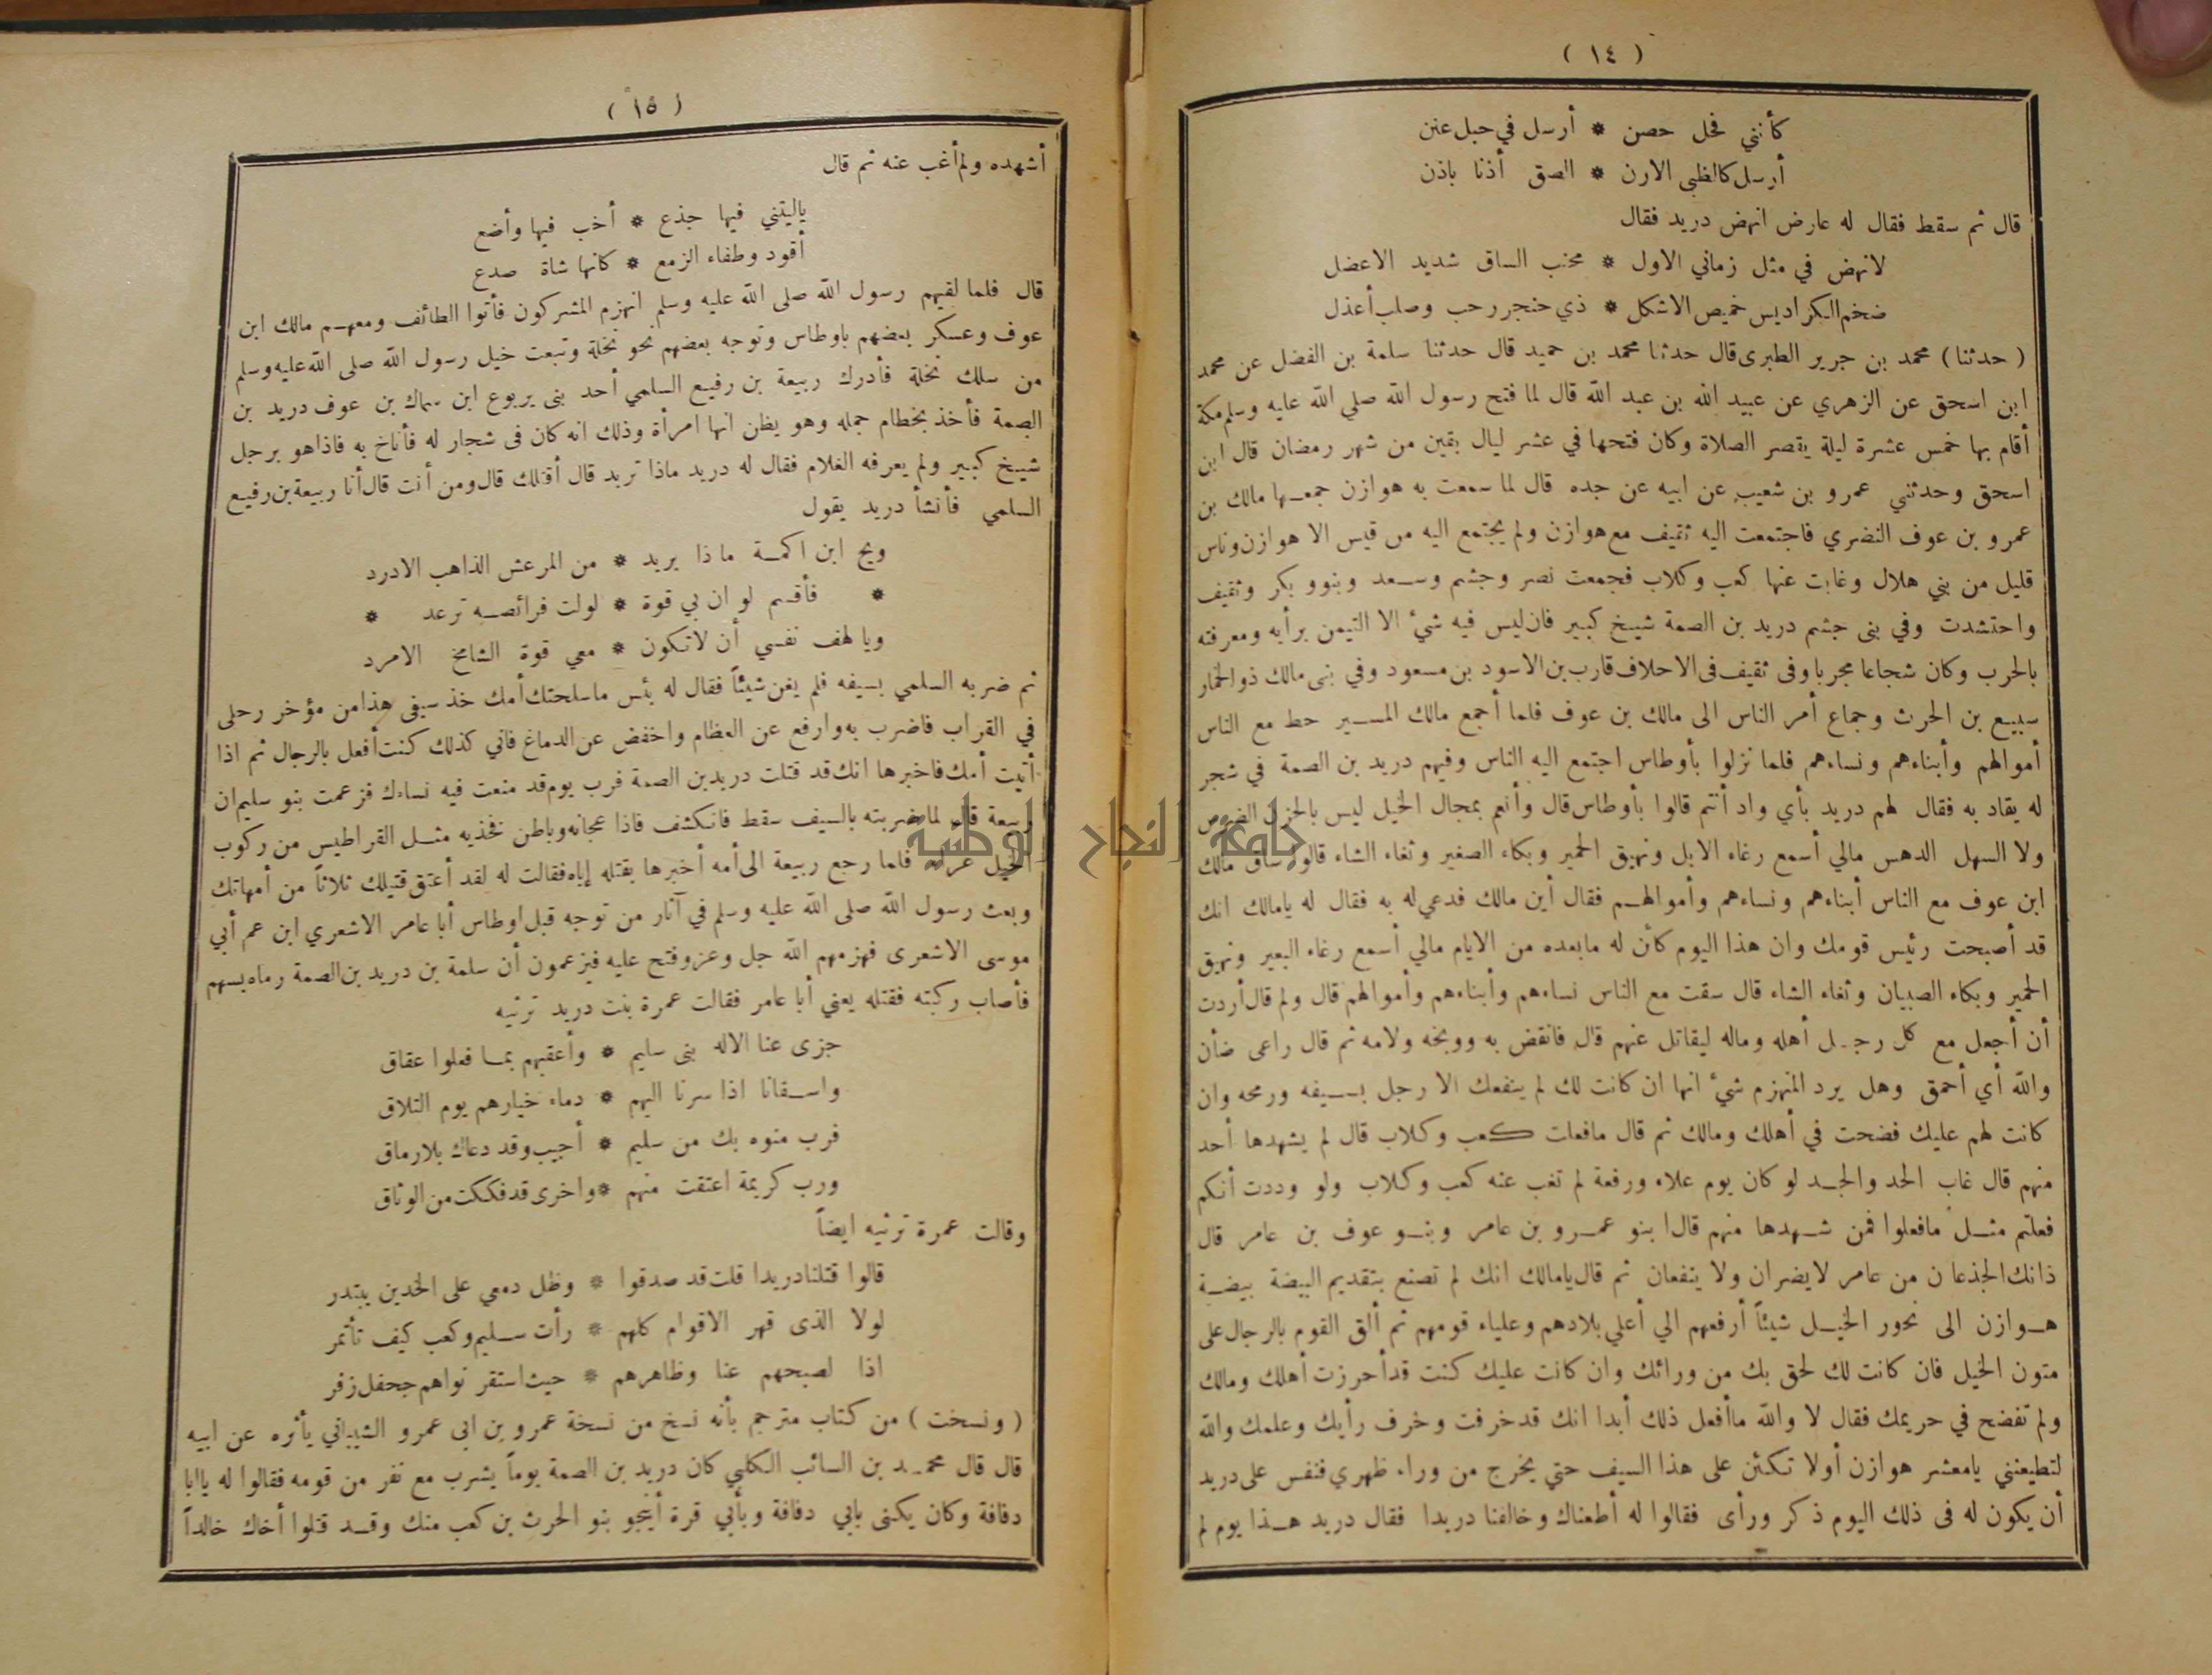 ( ١٤ )
كأنني فحل حصن * أرسل في حبل عنن
أرسل كالظبي الارن * الصق أذنا باذن
قال ثم سقط فقال له عارض انهض دريد فقال
لانهض في مثل زماني الاول * محنب الساق شديد الاعضل
ضخم الكراديس خميص الاشكل * ذي حنجر رحب وصلب أعذل
( حدثنا ) محمد بن جرير الطبرى قال حدثنا محمد بن حميد قال حدثنا سلمة بن الفضل عن محمد
ابن اسحق عن الزهري عن عبيد الله بن عبد الله قال لما فتح رسول الله صلي الله عليه وسلم مكة
أقام بها خمس عشرة ليلة يقصر الصلاة وكان فتحها في عشر ليال بقين من شهر رمضان قال ابن
اسحق وحدثني عمرو بن شعيب عن ابيه عن جده قال لما سمعت به هوازن جمعها مالك بن
عمرو بن عوف النضري فاجتمعت اليه ثقيف مع هوازن ولم يجتمع اليه من قيس الا هوازن وناس
قليل من بني هلال وغابت عنها كعب وكلاب فجمعت نصر وجشم وسعد وبنوو بكر وثقيف
واحتشدت وفي بنى جشم دريد بن الصمة شيخ كبير فان ليس فيه شيء الا التيمن برأيه ومعرفته
بالحرب وكان شجاعا مجربا وفى ثقيف فى الاحلاف قارب بن الاسود بن مسعود وفي بنى مالك ذو الخمار
سبيع بن الحرث وجماع أمر الناس الى مالك بن عوف فلما أجمع مالك المسير حط مع الناس
أموالهم وأبناءهم ونساءهم فلما نزلوا بأوطاس اجتمع اليه الناس وفيهم دريد بن الصمة في شجر
له يقاد به فقال لهم دريد بأي واد أنتم قالوا بأوطاس قال وأنعم بمجال الخيل ليس بالحزن الضرس
ولا السهل الدهس مالي أسمع رغاء الابل ونهيق الحمير وبكاء الصغير وثغاء الشاء قالوا ساق مالك
ابن عوف مع الناس أبناءهم ونساءهم وأموالهم فقال أين مالك فدعي له به فقال له يامالك انك
قد أصبحت رئيس قومك وان هذا اليوم كأن له مابعده من الايام مالي أسمع رغاء البعير ونهيق
الحمير وبكاء الصبيان وثغاء الشاء قال سقت مع الناس نساءهم وأبناءهم وأموالهم قال ولم قال أردت
أن أجعل مع كل رجل أهله وماله ليقاتل عنهم قال فانقض به ووبخه ولامه ثم قال راعى ضأن
والله أي أحمق وهل يرد المنهزم شيء انها ان كانت لك لم ينفعك الا رجل بسيفه ورمحه وان
كانت لهم عليك فضحت في أهلك ومالك ثم قال مافعلت كعب وكلاب قال لم يشهدها أحد
منهم قال غاب الحد والجد لو كان يوم علاء ورفعة لم تغب عنه كعب وكلاب ولو وددت أنكم
فعلتم مثل مافعلوا فمن شهدها منهم قالا بنو عمرو بن عامر وبنو عوف بن عامر قال
ذانك الجذعان من عامر لايضران ولا ينفعان ثم قال يامالك انك لم تصنع بتقديم البيضة بيضة
هوازن الى نحور الخيل شيئاً أرفعهم الي أعلي بلادهم وعلياء قومهم ثم ألق القوم بالرجال على
متون الخيل فان كانت لك لحق بك من ورائك وان كانت عليك كنت قد أحرزت أهلك ومالك
ولم تفضح في حريمك فقال لا والله ماأفعل ذلك أبدا انك قد خرفت وخرف رأيك وعلمك والله
لتطيعنني يامعشر هوازن أولا تكئن على هذا السيف حتي يخرج من وراء ظهري فنفس على دريد
أن يكون له فى ذلك اليوم ذكر ورأى فقالوا له أطعناك وخالفنا دريدا فقال دريد هذا يوم لم
( ١٥ )
أشهده ولم أغب عنه ثم قال
ياليتني فيها جذع * أخب فيها وأضع
أقود وطفاء الزمع * كانها شاة صدع
قال فلما لقيهم رسول الله صلى الله عليه وسلم انهزم المشركون فأتوا الطائف ومعهم مالك ابن
عوف وعسكر بعضهم باوطاس وتوجه بعضهم نحو نخلة وتبعت خيل رسول الله صلى الله عليه وسلم
من سلك نخلة فأدرك ربيعة بن رفيع السلمي أحد بنى يربوع ابن سماك بن عوف دريد بن
الصمة فأخذ بخطام جمله وهو يظن انها امرأة وذلك انه كان فى شجار له فأناخ به فاذا هو برجل
شيخ كبير ولم يعرفه الغلام فقال له دريد ماذا تريد قال أقتلك قال ومن أنت قال أنا ربيعة بن رفيع
السلمي فأنشأ دريد يقول
ويح ابن اكمة ماذا يريد * من المرعش الذاهب الادرد
* فأقسم لو ان بي قوة * لولت فرائصه ترعد *
ويا لهف نفسي أن لاتكون * معي قوة الشامخ الامرد
ثم ضربه السلمي بسيفه فلم يغن شيئاً فقال له بئس ماسلحتك أمك خذ سيفى هذا من مؤخر رحلى
في القراب فاضرب به وارفع عن العظام واخفض عن الدماغ فاني كذلك كنت أفعل بالرجال ثم اذا
أتيت أمك فاخبرها انك قد قتلت دريد بن الصمة فرب يوم قد منعت فيه نساءك فزعمت بنو سليم ان
ربيعة قال لما ضربته بالسيف سقط فانكشف فاذا عجانه وباطن فخذيه مثل القراطيس من ركوب
الخيل عريه فلما رجع ربيعة الى أمه أخبرها بقتله إياه فقالت له لقد أعتق قتيلك ثلاثاً من أمهاتك
وبعث رسول الله صلى الله عليه وسلم في آثار من توجه قبل اوطاس أبا عامر الاشعري ابن عم أبي
موسى الاشعرى فهزمهم الله جل وعز وفتح عليه فيزعمون أن سلمة بن دريد بن الصمة رماه بسهم
فأصاب ركبته فقتله يعني أبا عامر فقالت عمرة بنت دريد ترثيه
جزى عنا الاله بنى سليم * وأعقبهم بما فعلوا عقاق
واسقانا اذا سرنا اليهم * دماء خيارهم يوم التلاق
فرب منوه بك من سليم * أجيب وقد دعاك بلا رماق
ورب كريمة اعتقت منهم * واخرى قد فككت من الوثاق
وقالت عمرة ترثيه ايضاً
قالوا قتلنا دريدا قلت قد صدقوا * وظل دمعي على الخدين يبتدر
لولا الذى قهر الاقوام كلهم * رأت سليم وكعب كيف تأتمر
اذا لصبحهم عنا وظاهرهم * حيث استقر نواهم جحفل زفر
( ونسخت ) من كتاب مترجم بأنه نسخ من نسخة عمرو بن ابى عمرو الشيباني يأثره عن ابيه
قال قال محمد بن السائب الكلبي كان دريد بن الصمة يوماً يشرب مع نفر من قومه فقالوا له ياابا
دفافة وكان يكنى بابي دفافة وبأبي قرة أينجو بنو الحرث بن كعب منك وقد قتلوا أخاك خالداً
جامعة النجاح الوطنية